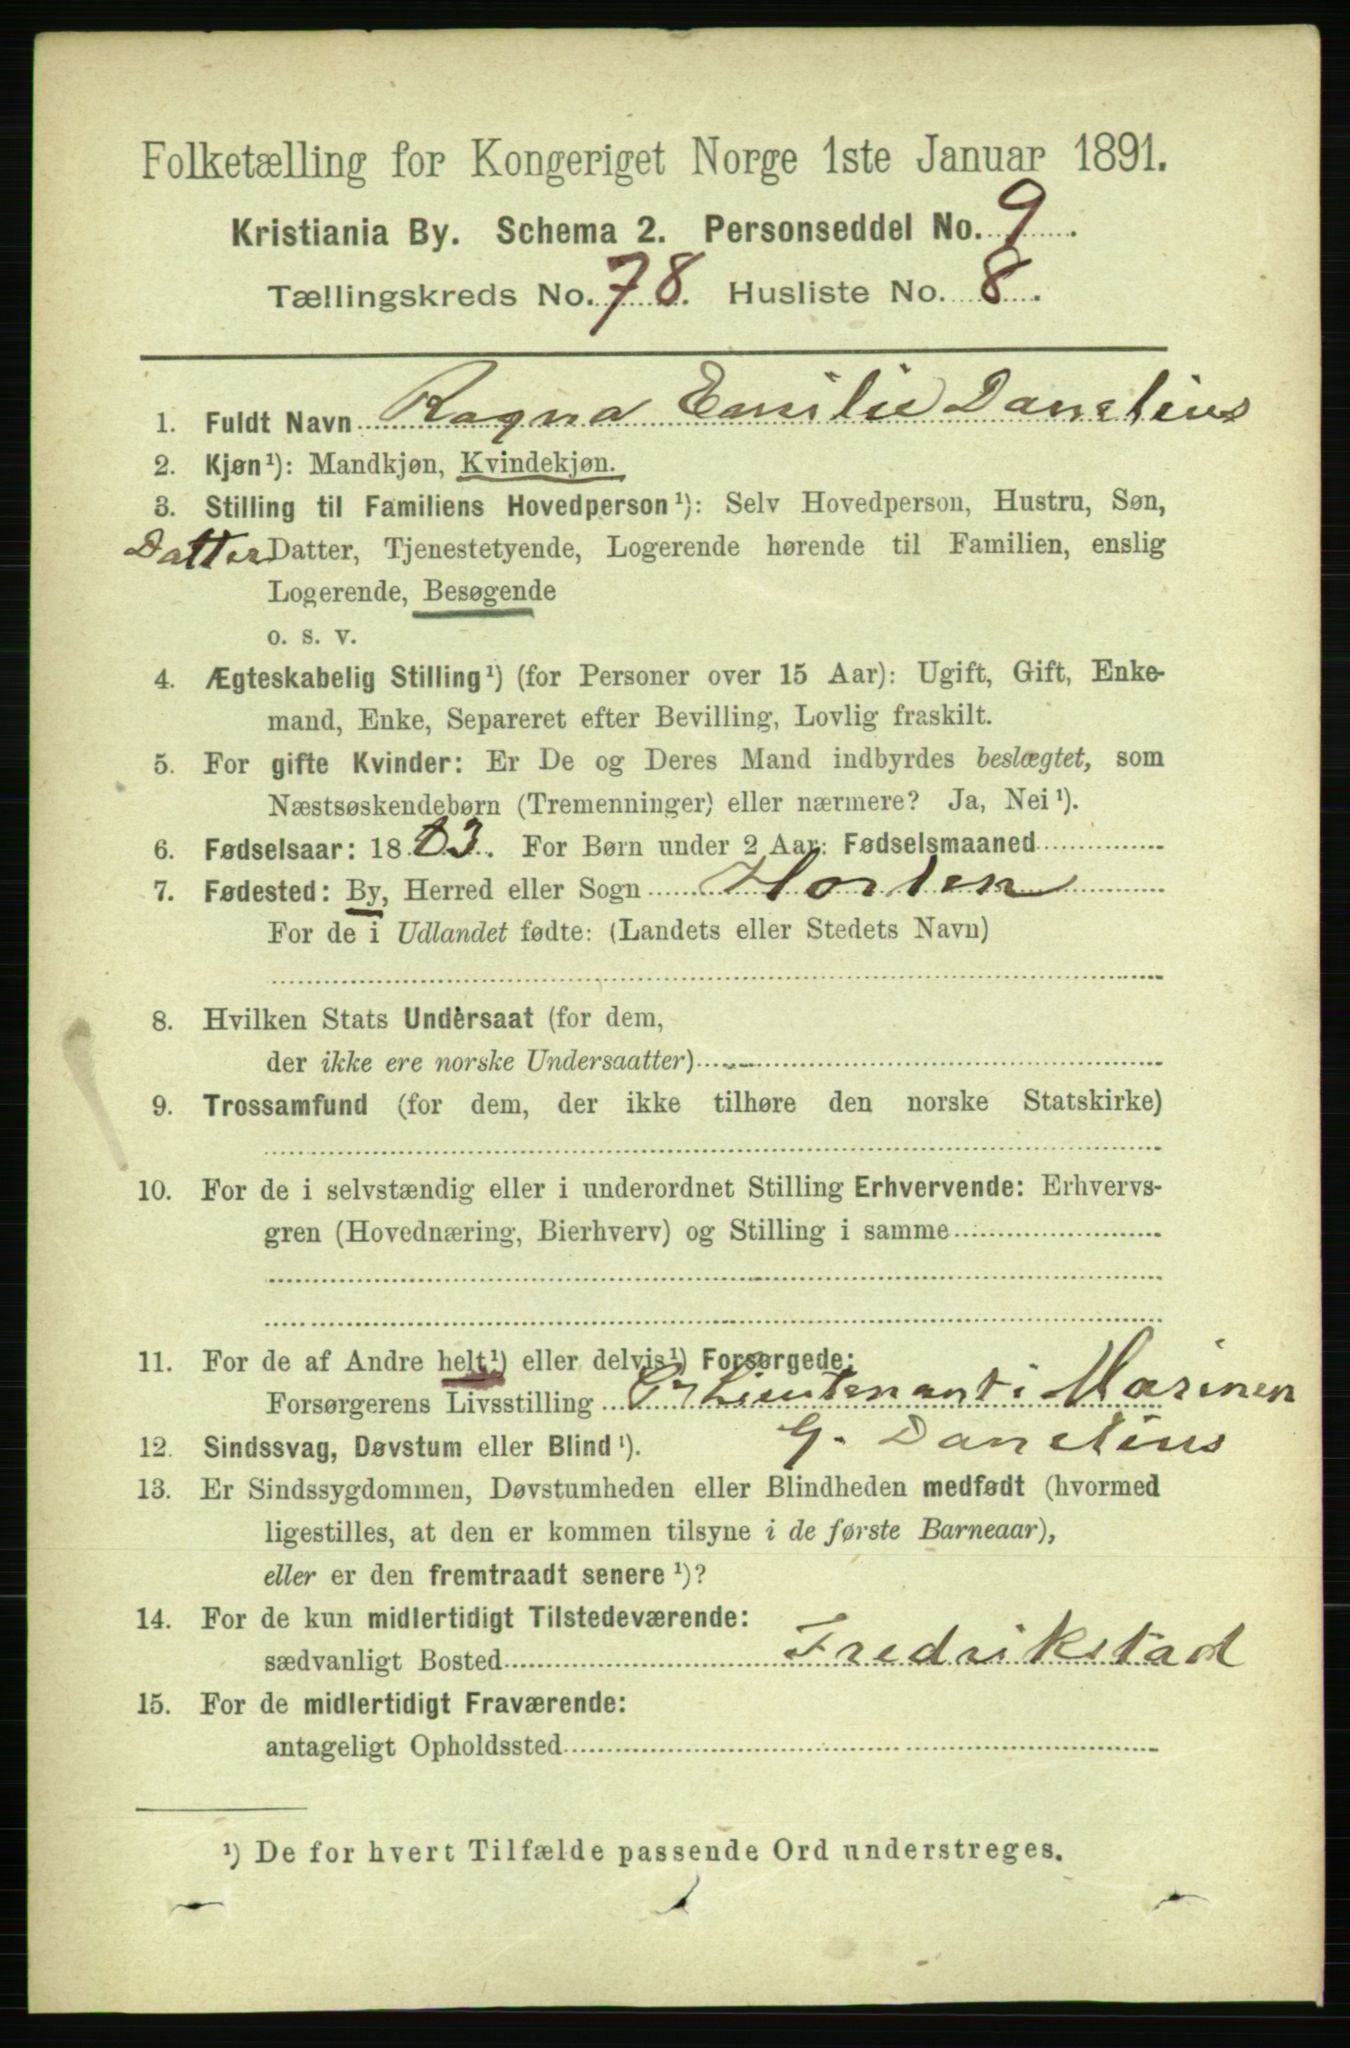 Folketælling for Kongeriget Norge 1ste Januar 1891.
Kristiania By. Schema 2. Personseddel No. 9.
Tællingskreds No. 78. Husliste No. 8.
1. Fuldt Navn Ragna Emilie Danelius
2. Kjøn¹): Mandkjøn, Kvindekjøn.
3. Stilling til Familiens Hovedperson¹): Selv Hovedperson, Hustru, Søn,
Datter Datter, Tjenestetyende, Logerende hørende til Familien, enslig
Logerende, Besøgende
o. s. v.
4. Ægteskabelig Stilling¹) (for Personer over 15 Aar): Ugift, Gift, Enke-
mand, Enke, Separeret efter Bevilling, Lovlig fraskilt.
5. For gifte Kvinder: Er De og Deres Mand indbyrdes beslægtet, som
Næstsøskendebørn (Tremenninger) eller nærmere? Ja, Nei¹).
6. Fødselsaar: 1883. For Børn under 2 Aar: Fødselsmaaned
7. Fødested: By, Herred eller Sogn Horten
For de i Udlandet fødte: (Landets eller Stedets Navn)
8. Hvilken Stats Undersaat (for dem,
der ikke ere norske Undersaatter)
9. Trossamfund (for dem, der ikke tilhøre den norske Statskirke)
10. For de i selvstændig eller i underordnet Stilling Erhvervende: Erhvervs-
gren (Hovednæring, Bierhverv) og Stilling i samme
11. For de af Andre helt¹) eller delvis¹) Forsørgede:
Forsørgerens Livsstilling Lieutenant i Marinen
G. Danelius
12. Sindssvag, Døvstum eller Blind¹).
13. Er Sindssygdommen, Døvstumheden eller Blindheden medfødt (hvormed
ligestilles, at den er kommen tilsyne i de første Barneaar),
eller er den fremtraadt senere¹)?
14. For de kun midlertidigt Tilstedeværende:
sædvanligt Bosted Fredrikstad
15. For de midlertidigt Fraværende:
antageligt Opholdssted
¹) De for hvert Tilfælde passende Ord understreges.